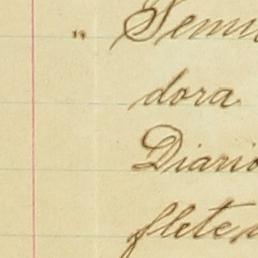 " Semin
dora
Diario
flete